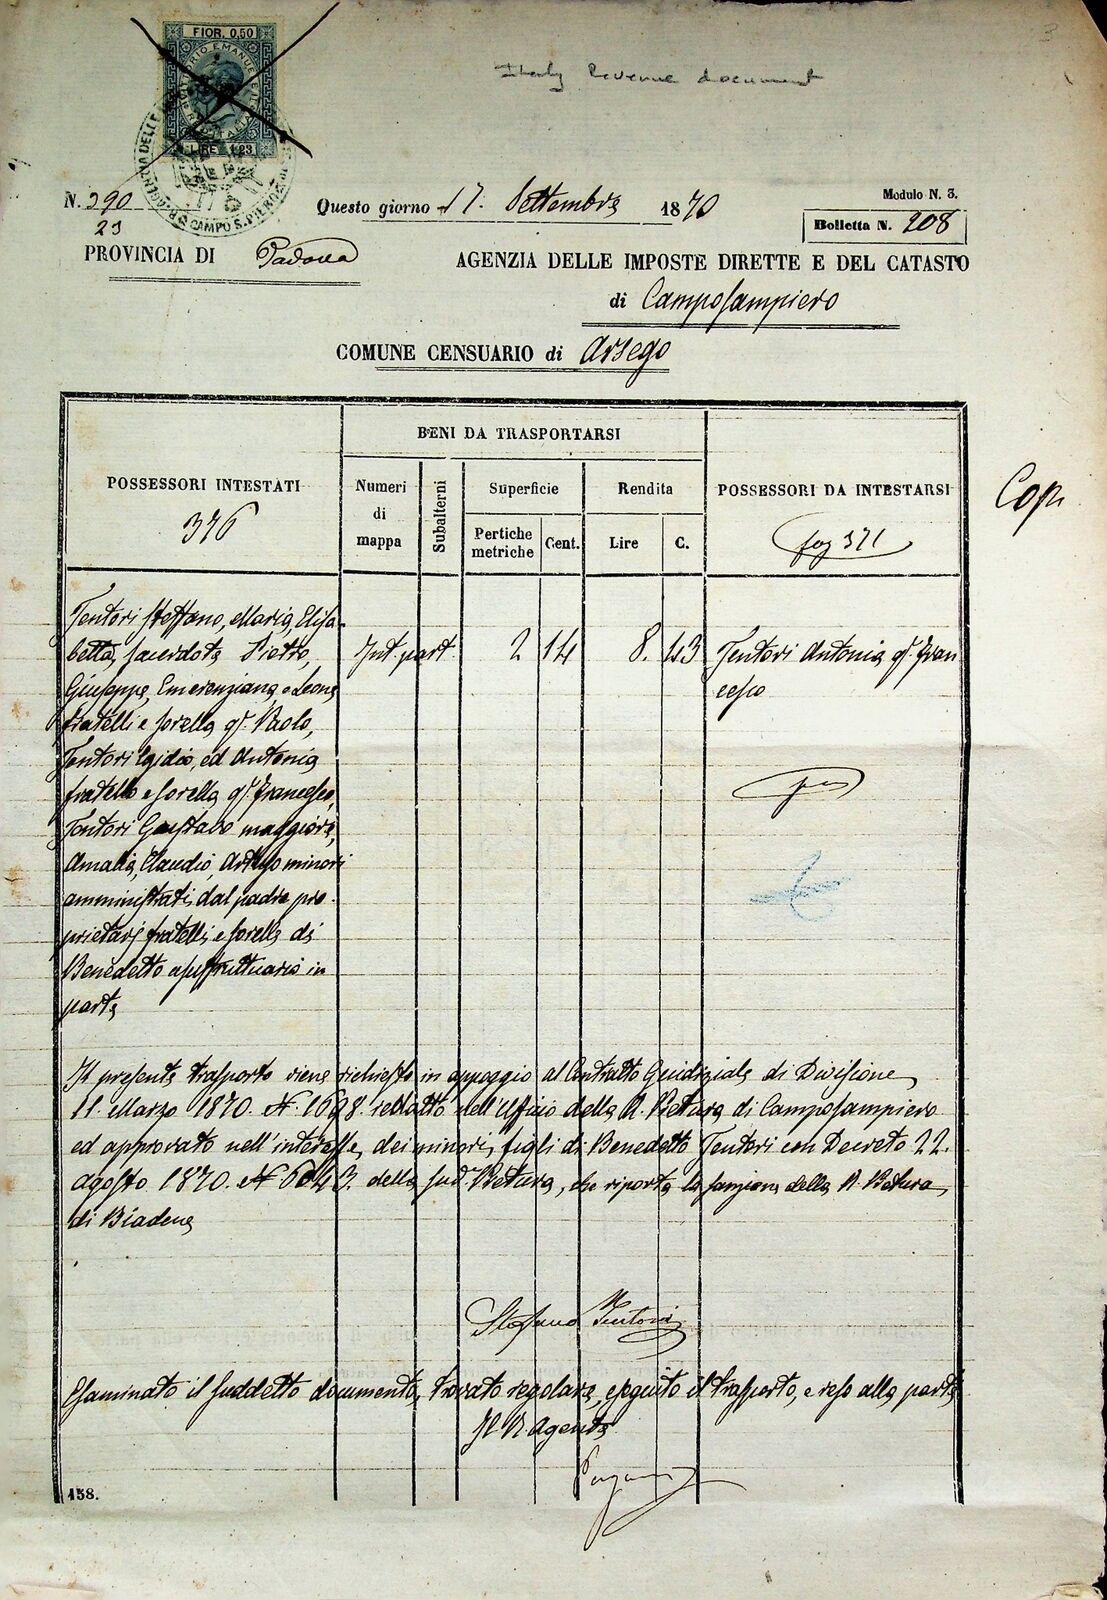 FIOR. 0,50
VITTORIO EMANUELE
LIRE 1.23
AGENZIA DELLE
CAMPO S. PIERO
Italy Revenue document
3
N. 390
23
Questo giorno 17. Settembre 1870
Modulo N. 3.
Bolletta N. 208
PROVINCIA DI Padova
AGENZIA DELLE IMPOSTE DIRETTE E DEL CATASTO
di Camposampiero
COMUNE CENSUARIO di Arsego
POSSESSORI INTESTATI
376
BENI DA TRASPORTARSI
Numeri di mappa
Subalterni
Superficie
Pertiche metriche
Cent.
Rendita
Lire
C.
POSSESSORI DA INTESTARSI
fog 371
Copi
Tentori Steffano, Maria, Elisa-
betta, sacerdote Pietro,
Giuseppe, Emerenziana, e Leone
fratelli e sorelle q.m Paolo,
Tentori Egidio, ed Antonia
fratello e sorella q.m Francesco,
Tentori Gustavo maggiore,
Amalia, Claudio, Arturo minori
amministrati dal padre pro-
prietarj fratelli e sorelle di
Benedetto usufruttuario in
parte
Int. part. 2 14 8. 43
Tentori Antonia q.m Fran
cesco
Il presente trasporto viene richiesto in appoggio al Contratto Giudiziale di Divisione
11. Marzo 1870. N. 1698. redatto nell'Ufficio della R. Pretura di Camposampiero
ed approvato nell'interesse dei minori figli di Benedetto Tentori con Decreto 22.
Agosto 1870. N. 6043. della sud.a Pretura, che riporta la sanzione della R. Pretura
di Biadene
Stefano Tentori
Esaminato il suddetto documento, trovato regolare, eseguito il trasporto, e reso alla parte
Il R. Agente
158.